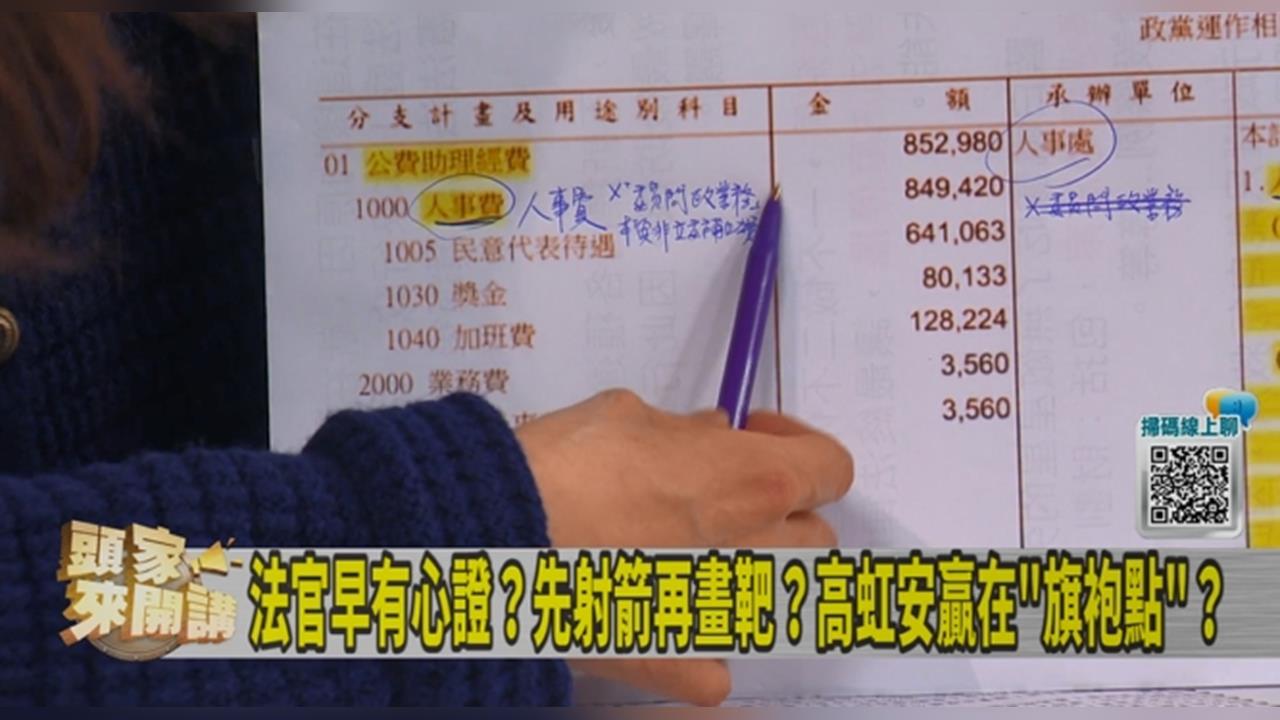 政黨運作相
分支計畫及用途別科目 金額 承辦單位
01 公費助理經費 852,980 人事處
本
1000 人事費 人事費 849,420
1.
1005 民意代表待遇 641,063
1030 獎金 80,133
1040 加班費 128,224
2000 業務費 3,560
3,560
掃碼線上聊
頭家來開講
法官早有心證？先射箭再畫靶？高虹安贏在"旗袍點"？